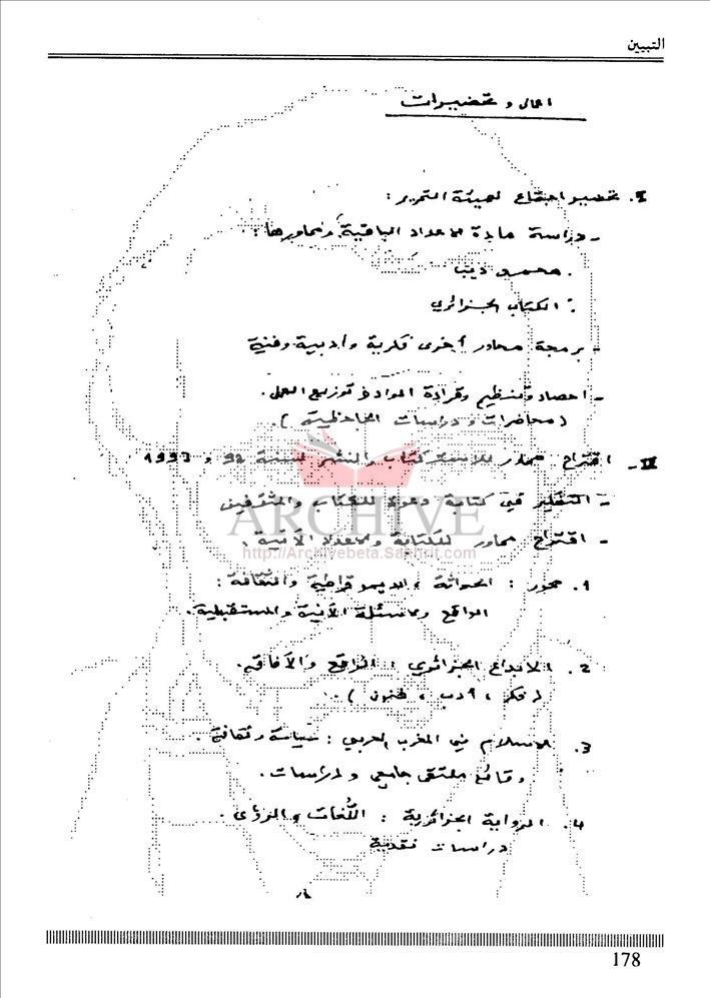 التبيين
اعمال و تحضيرات
I. تحضير اجتماع لهيئة التحرير :
- دراسة مادة الاعداد الباقية ومحاورها :
. محمد ديب
. الكتاب الجزائري
- برمجة محاور أخرى فكرية وأدبية وفنية
- احصاء وتنظيم وقراءة المواد و توزيع العمل .
( محاضرات و دراسات الجاحظية ) .
II - اقتراح محاور للاستكتاب والنشر لسنة 92 و 1993
- التفكير في كتابة دعوة للكتاب والمثقفين
- اقتراح محاور للكتابة وللأعداد الآتية .
ARCHIVE
http://Archivebeta.Sakhrit.com
1. محور : الحداثة ، الديموقراطية والثقافة :
الواقع والأسئلة الآنية والمستقبلية .
2. الابداع الجزائري : الواقع والآفاق .
( فكر ، أدب ، فنون ) .
3. الاسلام في المغرب العربي : سياسة وثقافة .
وقائع ملتقى جامعي ودراسات .
4. الرواية الجزائرية : اللّغات والرؤى .
دراسات نقدية
178